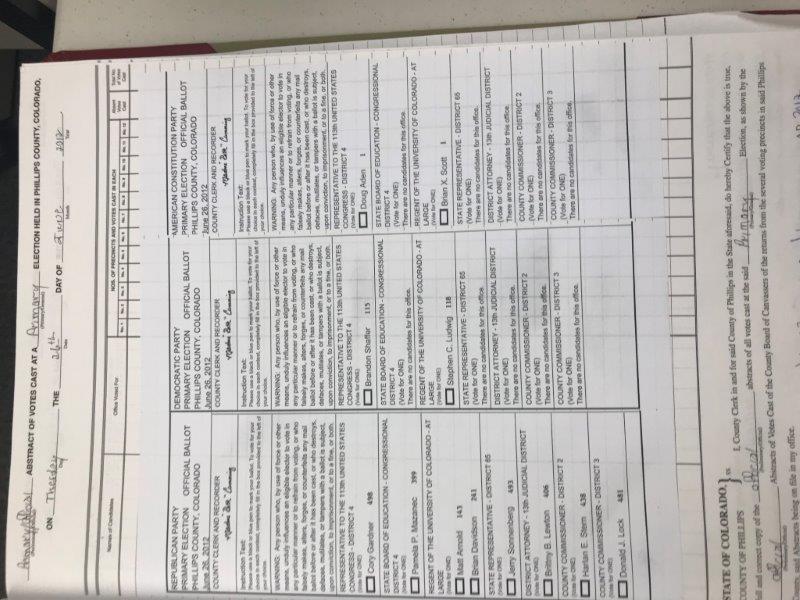 ABSTRACT OF VOTES CAST AT A Primary ELECTION HELD IN PHILLIPS COUNTY, COLORADO,
ON THE 26th DAY OF 2012
Names of Candidates
Office Voted For
NOS. OF PRECINCTS AND VOTES CAST IN EACH
REPUBLICAN PARTY
PRIMARY ELECTION OFFICIAL BALLOT
PHILLIPS COUNTY, COLORADO
June 26, 2012
COUNTY CLERK AND RECORDER
Instruction Text:
Please use a black or blue pen to mark your ballot. To vote for your
choice in each contest, completely fill in the box provided to the left of
your choice.
WARNING: Any person who, by use of force or other
means, unduly influences an eligible elector to vote in
any particular manner or to refrain from voting, or who
falsely makes, alters, forges, or counterfeits any mail
ballot before or after it has been cast, or who destroys,
defaces, mutilates, or tampers with a ballot is subject,
upon conviction, to imprisonment, or to a fine, or both.
REPRESENTATIVE TO THE 113th UNITED STATES
CONGRESS - DISTRICT 4
(Vote for ONE)
Cory Gardner 498
STATE BOARD OF EDUCATION - CONGRESSIONAL
DISTRICT 4
(Vote for ONE)
Pamela P. Mazanec 399
REGENT OF THE UNIVERSITY OF COLORADO - AT
LARGE
(Vote for ONE)
Matt Arnold 143
Brian Davidson 241
STATE REPRESENTATIVE - DISTRICT 65
(Vote for ONE)
Jerry Sonnenberg 493
DISTRICT ATTORNEY - 13th JUDICIAL DISTRICT
(Vote for ONE)
Brittny B. Lewton 406
COUNTY COMMISSIONER - DISTRICT 2
(Vote for ONE)
Harlan E. Stern 438
COUNTY COMMISSIONER - DISTRICT 3
(Vote for ONE)
Donald J. Lock 481
DEMOCRATIC PARTY
PRIMARY ELECTION OFFICIAL BALLOT
PHILLIPS COUNTY, COLORADO
June 26, 2012
COUNTY CLERK AND RECORDER
Instruction Text:
Please use a black or blue pen to mark your ballot. To vote for your
choice in each contest, completely fill in the box provided to the left of
your choice.
WARNING: Any person who, by use of force or other
means, unduly influences an eligible elector to vote in
any particular manner or to refrain from voting, or who
falsely makes, alters, forges, or counterfeits any mail
ballot before or after it has been cast, or who destroys,
defaces, mutilates, or tampers with a ballot is subject,
upon conviction, to imprisonment, or to a fine, or both.
REPRESENTATIVE TO THE 113th UNITED STATES
CONGRESS - DISTRICT 4
(Vote for ONE)
Brandon Shaffer 115
STATE BOARD OF EDUCATION - CONGRESSIONAL
DISTRICT 4
(Vote for ONE)
There are no candidates for this office.
REGENT OF THE UNIVERSITY OF COLORADO - AT
LARGE
(Vote for ONE)
Stephen C. Ludwig 118
STATE REPRESENTATIVE - DISTRICT 65
(Vote for ONE)
There are no candidates for this office.
DISTRICT ATTORNEY - 13th JUDICIAL DISTRICT
(Vote for ONE)
There are no candidates for this office.
COUNTY COMMISSIONER - DISTRICT 2
(Vote for ONE)
There are no candidates for this office.
COUNTY COMMISSIONER - DISTRICT 3
(Vote for ONE)
There are no candidates for this office.
AMERICAN CONSTITUTION PARTY
PRIMARY ELECTION OFFICIAL BALLOT
PHILLIPS COUNTY, COLORADO
June 26, 2012
COUNTY CLERK AND RECORDER
Instruction Text:
Please use a black or blue pen to mark your ballot. To vote for your
choice in each contest, completely fill in the box provided to the left of
your choice.
WARNING: Any person who, by use of force or other
means, unduly influences an eligible elector to vote in
any particular manner or to refrain from voting, or who
falsely makes, alters, forges, or counterfeits any mail
ballot before or after it has been cast, or who destroys,
defaces, mutilates, or tampers with a ballot is subject,
upon conviction, to imprisonment, or to a fine, or both.
REPRESENTATIVE TO THE 113th UNITED STATES
CONGRESS - DISTRICT 4
(Vote for ONE)
Doug Aden 1
STATE BOARD OF EDUCATION - CONGRESSIONAL
DISTRICT 4
(Vote for ONE)
There are no candidates for this office.
REGENT OF THE UNIVERSITY OF COLORADO - AT
LARGE
(Vote for ONE)
Brian X. Scott 1
STATE REPRESENTATIVE - DISTRICT 65
(Vote for ONE)
There are no candidates for this office.
DISTRICT ATTORNEY - 13th JUDICIAL DISTRICT
(Vote for ONE)
There are no candidates for this office.
COUNTY COMMISSIONER - DISTRICT 2
(Vote for ONE)
There are no candidates for this office.
COUNTY COMMISSIONER - DISTRICT 3
(Vote for ONE)
There are no candidates for this office.
STATE OF COLORADO,
COUNTY OF PHILLIPS } ss I, County Clerk in and for said County of Phillips in the State aforesaid, do hereby Certify that the above is true,
full and correct copy of the official abstracts of all votes cast at the said Primary Election, as shown by the
Abstracts of Votes Cast of the County Board of Canvassers of the returns from the several voting precincts in said Phillips
County, said Abstracts being on file in my office.